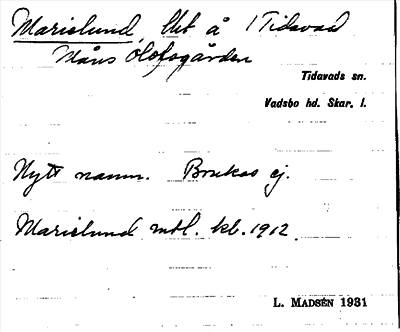 Marielund, lht å 1 Tidavad
Måns Olofsgården
Tidavads sn.
Vadsbo hd. Skar. l.
Nytt namn. Brukas ej.
Marielund mtl. kb. 1912.
L. MADSÉN 1931